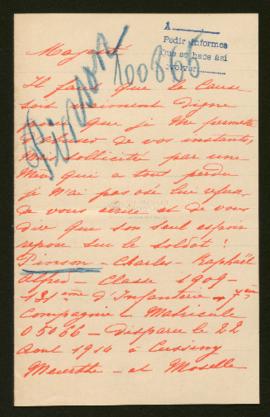 A
Pedir informes
Que se hace así
Majesté
100866
Pinson
Il faut que la Cause
soit vraiment digne
que je me permette
de vos instants,
sollicitée par une
Mère qui a tout perdu
je n'ai pas osé lui refuser
de vous écrire et de vous
dire que son seul espoir
repose sur le soldat :
Pinson - Charles - Raphaël
Alfred - Classe 1909 -
131ème d'Infanterie - 7ème
Compagnie - Matricule
05166 - Disparu le 22
Août 1914 à
Meurthe - et Moselle